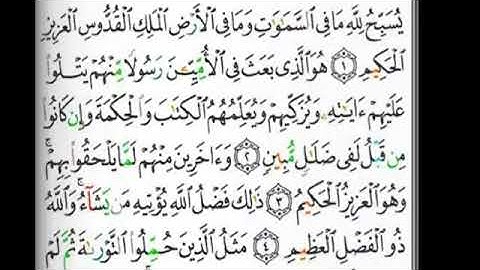 يُسَبِّحُ لِلَّهِ مَا فِى ٱلسَّمَٰوَٰتِ وَمَا فِى ٱلْأَرْضِ ٱلْمَلِكِ ٱلْقُدُّوسِ ٱلْعَزِيزِ
ٱلْحَكِيمِ ۝١ هُوَ ٱلَّذِى بَعَثَ فِى ٱلْأُمِّيِّـۧنَ رَسُولًا مِّنْهُمْ يَتْلُوا۟
عَلَيْهِمْ ءَايَٰتِهِۦ وَيُزَكِّيهِمْ وَيُعَلِّمُهُمُ ٱلْكِتَٰبَ وَٱلْحِكْمَةَ وَإِن كَانُوا۟
مِن قَبْلُ لَفِى ضَلَٰلٍ مُّبِينٍ ۝٢ وَءَاخَرِينَ مِنْهُمْ لَمَّا يَلْحَقُوا۟ بِهِمْ ۚ
وَهُوَ ٱلْعَزِيزُ ٱلْحَكِيمُ ۝٣ ذَٰلِكَ فَضْلُ ٱللَّهِ يُؤْتِيهِ مَن يَشَآءُ ۚ وَٱللَّهُ
ذُو ٱلْفَضْلِ ٱلْعَظِيمِ ۝٤ مَثَلُ ٱلَّذِينَ حُمِّلُوا۟ ٱلتَّوْرَىٰةَ ثُمَّ لَمْ